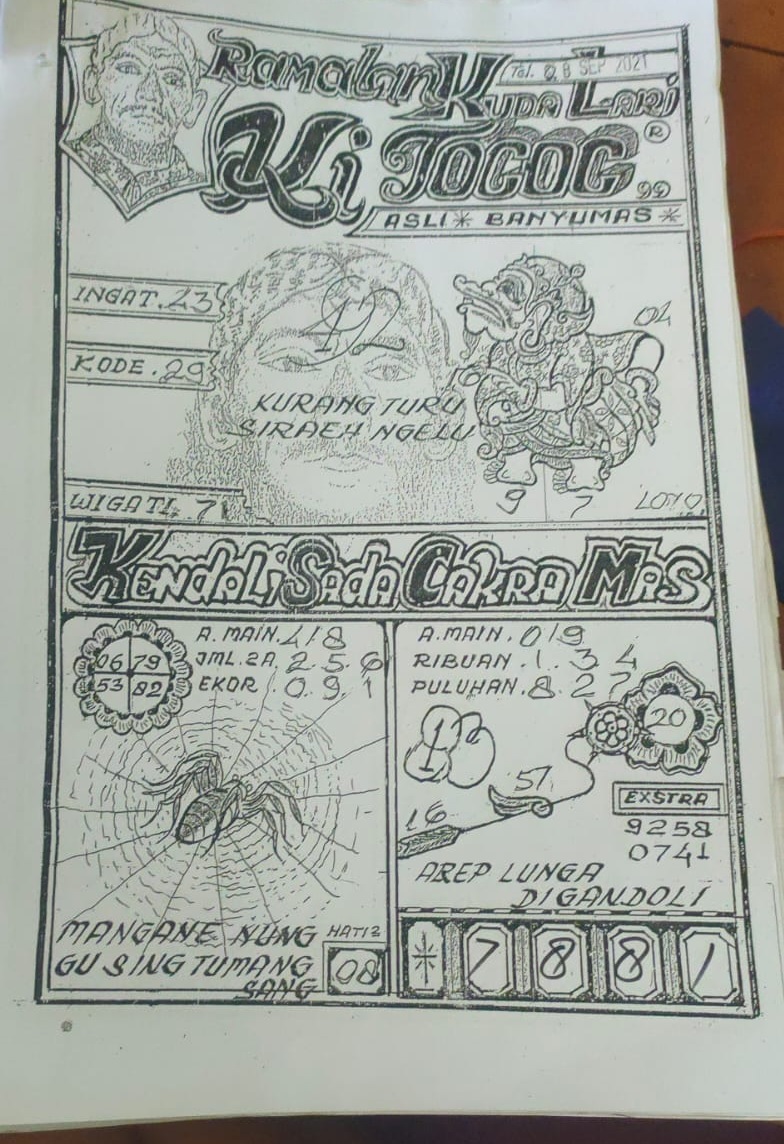 Ramalan Kuda Lari
Tgl. 08 SEP 2021
Ki Togog ®
99
ASLI * BANYUMAS *
INGAT. 43
92
04
KODE. 29
KURANG TURU
SIRAEH NGELU
9 7
WIGATI. 71
Kendali Sada Cakra Mas
A. MAIN. 4/8
JML. 2A. 2. 5. 6
EKOR . 0. 9. 1
06 79
53 82
MANGANE NUNG
GU SING TUMANG
SANG
HATI2
08
A. MAIN. 0/9
RIBUAN . 1. 3 4
PULUHAN. 8. 2 7
20
51
16
EXSTRA
9258
0741
AREP LUNGA
DIGANDOLI
7 8 8 1